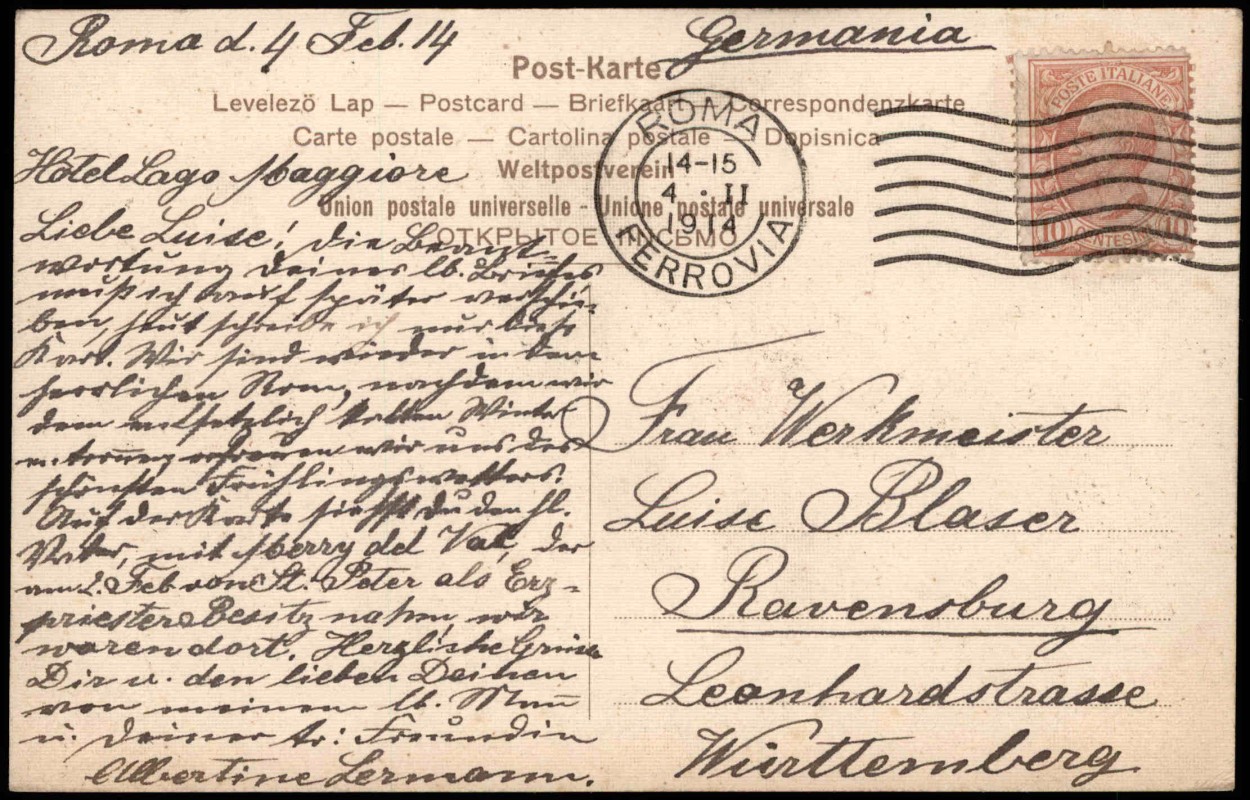 Roma d. 4 Feb. 14
Germania
Post-Karte
Levelező Lap — Postcard — Briefkaart — Correspondenzkarte
Carte postale — Cartolina postale — Dopisnica
Weltpostverein
Union postale universelle - Unione postale universale
ОТКРЫТОЕ ПИСЬМО
ROMA
14-15
4 · II
1914
FERROVIA
POSTE ITALIANE
10 CENTESIMI 10
Hôtel Lago Maggiore
Liebe Luise! Die Beant-
wortung Deines lb. Briefes
muß ich auf später verschie-
ben, heut schreibe ich nur diese
Kart. Wir sind wieder in dem
herrlichen Rom, nachdem wir
dem entsetzlich kalten Winter
entronnen erfreuen wir uns des
schönsten Frühlingswetters.
Auf der Karte siehst Du den hl.
Vater, mit Merry del Val, der
am 2. Feb von St. Peter als Erz-
priester Besitz nahm, wir
waren dort. Herzlische Grüße
Dir u. den lieben Deinen
von meinem lb. Mann
u. Deiner tr: Freundin
Albertine Lermann.
Frau Werkmeister
Luise Blaser
Ravensburg
Leonhardstrasse
Württemberg